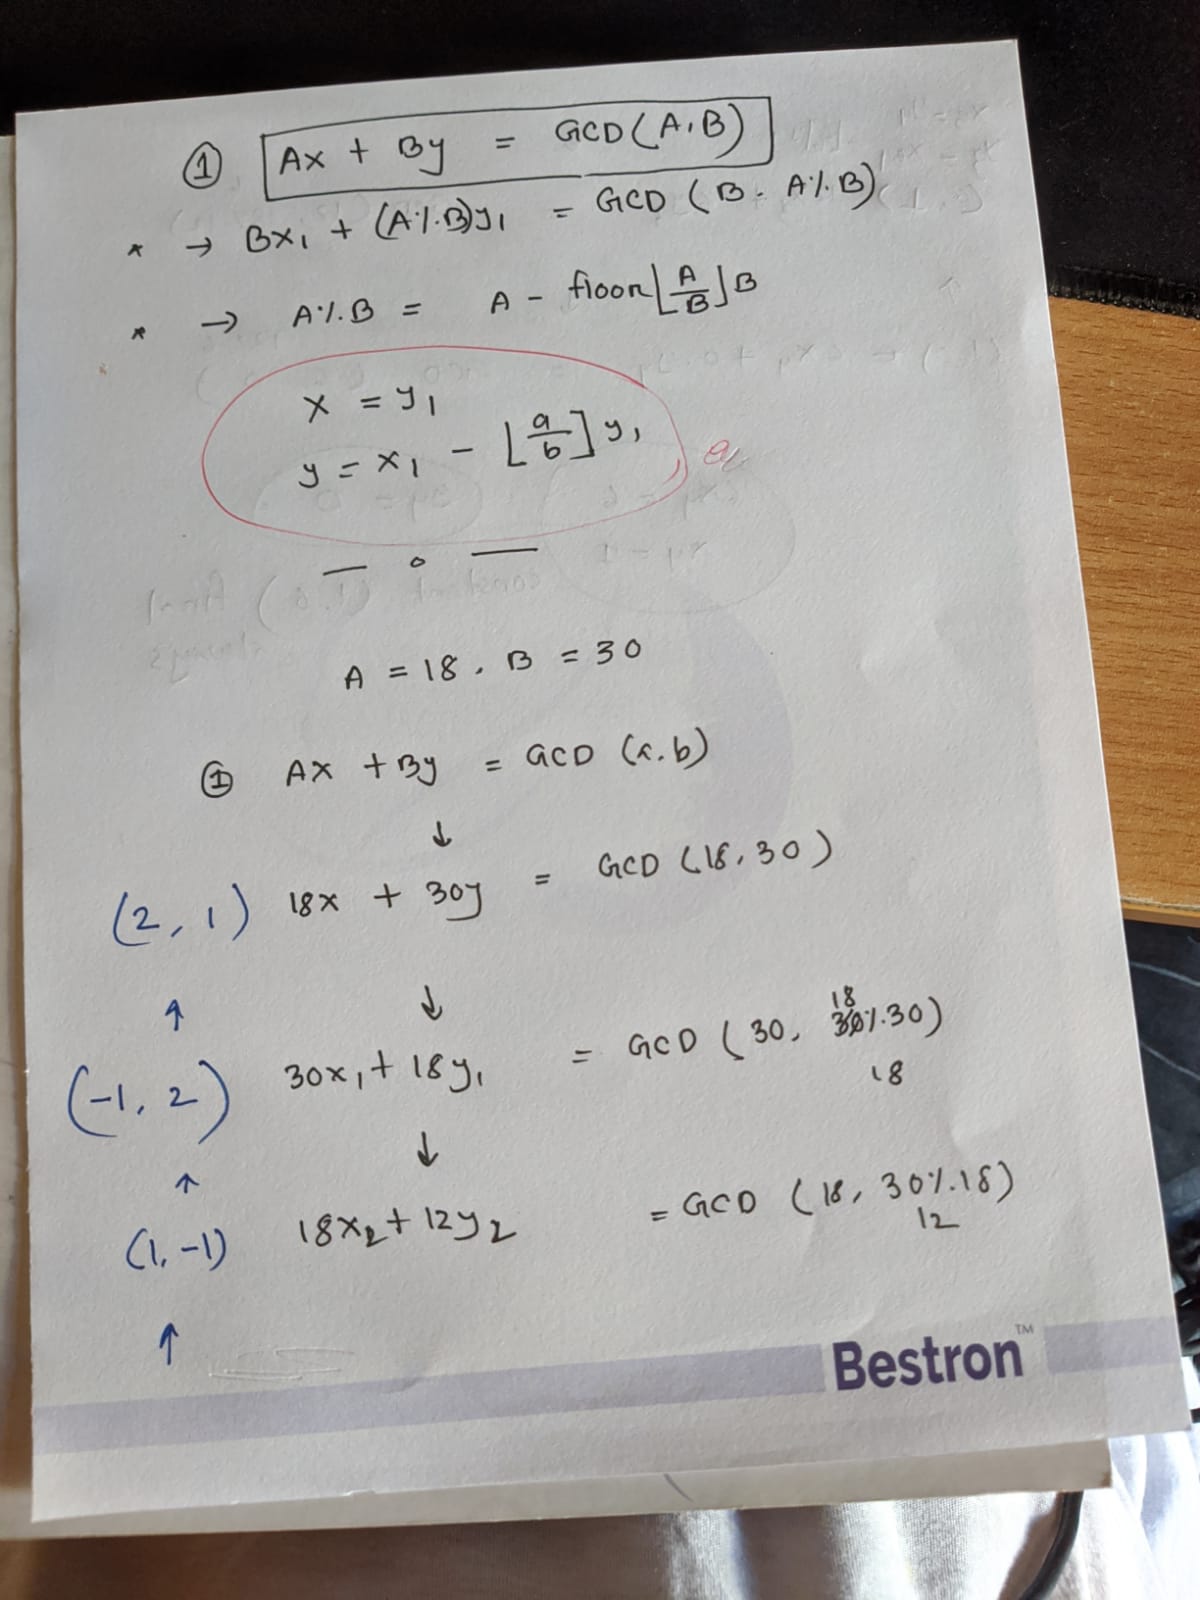 ① Ax + By = GCD(A,B)
* → Bx₁ + (A%B)y₁ = GCD (B. A%B)
* → A%B = A - floor⌊A/B⌋B
x = y₁
y = x₁ - ⌊a/b⌋ y₁
— o —
A = 18 . B = 30
① Ax + By = GCD (a.b)
↓
(2, 1) 18x + 30y = GCD (18, 30)
↑ ↓
(-1, 2) 30x₁ + 18y₁ = GCD (30, 18%30)
18
↑ ↓
(1, -1) 18x₂ + 12y₂ = GCD (18, 30%18)
12
↑
Bestron™